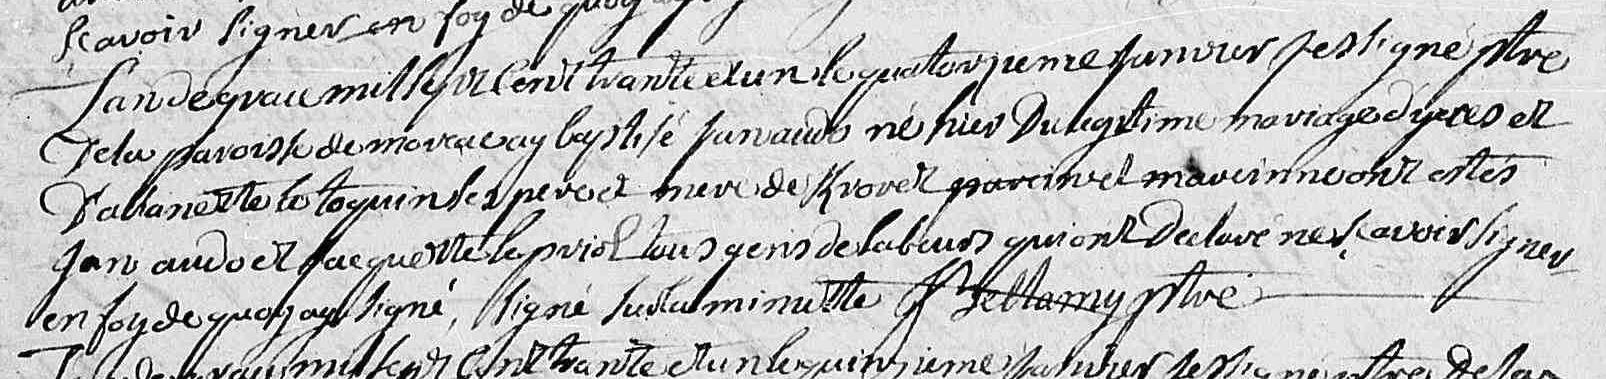 sçavoir signer en foy de quoy
Lan de grace mil sept cent trante et un le quatorzieme janvier je signé ptre
De la paroisse de morac ay baptisé jan audo né hier Du legitime mariage d'yves et
D'allanette le toquin ses pere et mere de Krovet parein et mareinne ont estés
jan audo et jacquette le priol tous gens de labeurs qui ont Declaré ne sçavoir signer
en foy de quoy ay signé, signé sur la minutte J Bellamy ptre
Lan de grace mil sept cent trante et un le quinzieme janvier je signé ptre De la